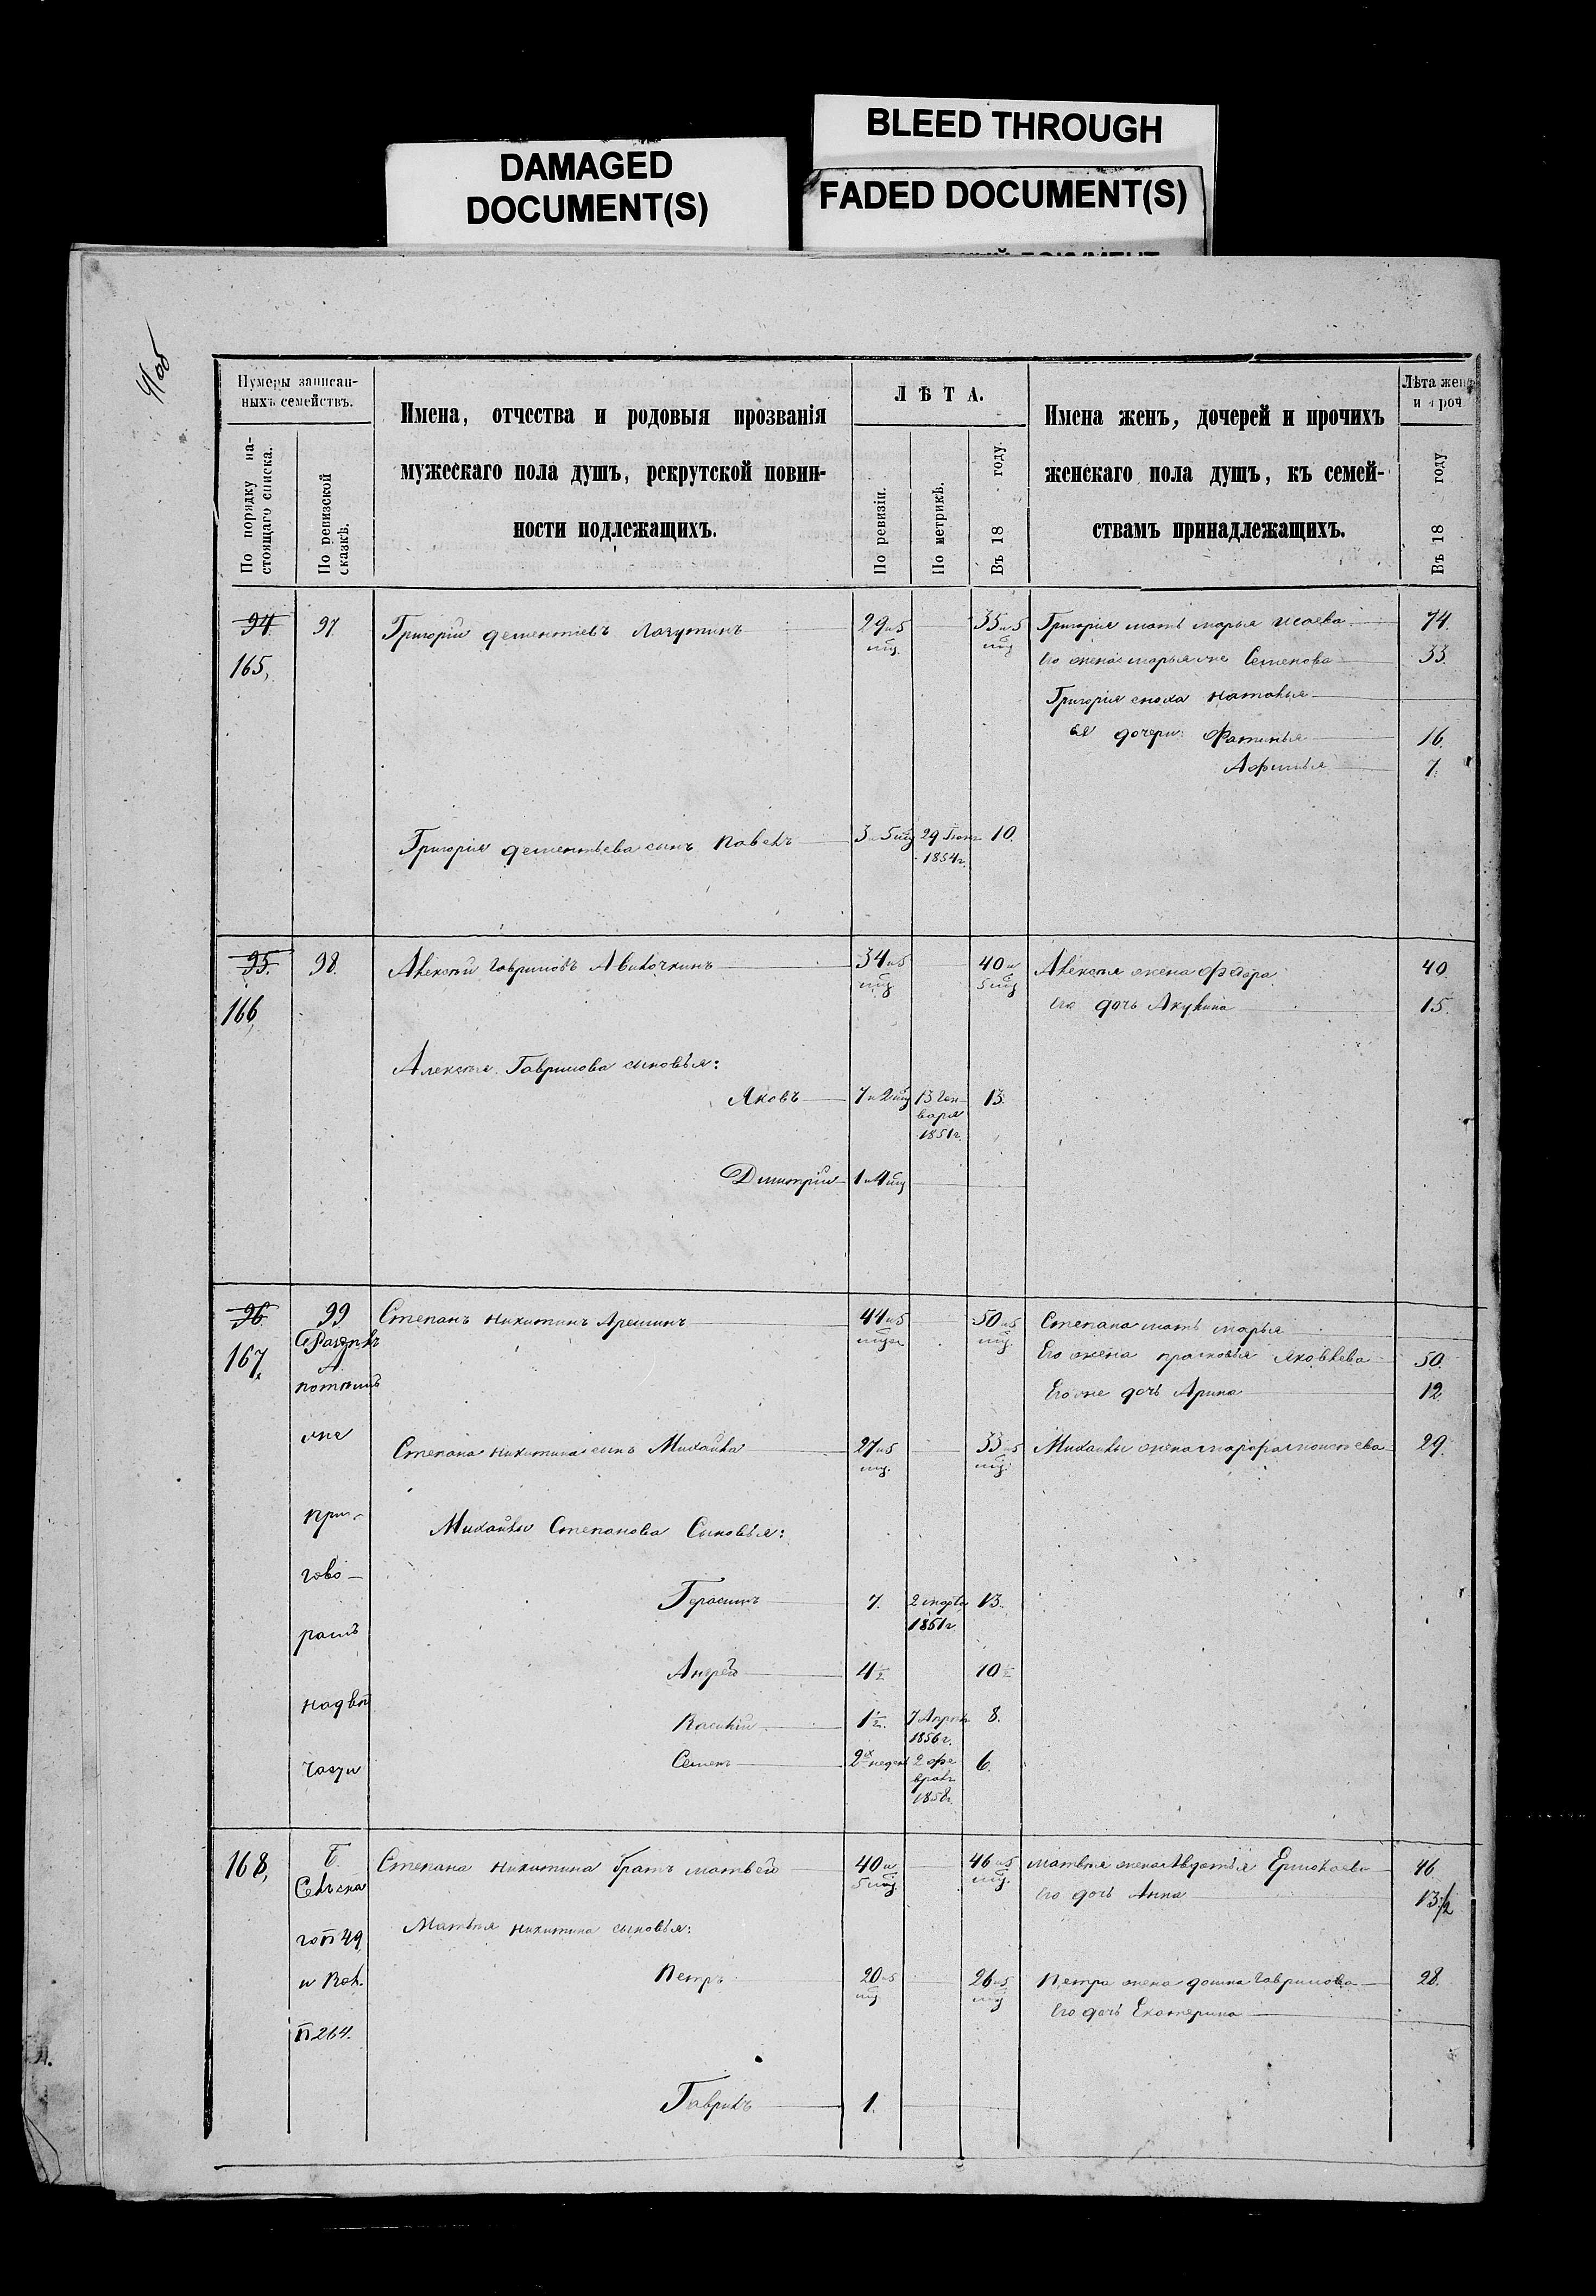 BLEED THROUGH
DAMAGED
DOCUMENT(S)
FADED DOCUMENT(S)
Нумеры записан-
ныхъ семействъ.
По порядку на-
стоящаго списка.
По ревизской
сказкѣ.
Имена, отчества и родовыя прозванія
мужескаго пола душъ, рекрутской повин-
ности подлежащихъ.
ЛѢТА.
По ревизіи.
По метрикѣ.
Въ 18 году.
Имена женъ, дочерей и прочихъ
женскаго пола душъ, къ семей-
ствамъ принадлежащихъ.
Лѣта женъ
и проч
Въ 18 году
94 97 Григорій Дементіевъ Лагутинъ 29 и 5 мц. 35 и 5 мц Григорія мать Марья Исаева 74.
165, Его жена Марья же Семенова 33.
Григорія сноха Наталья
Ея дочери: Фатинья 16.
Афимья 7.
Григорія Дементьева сынъ Павелъ 3 и 5 мц 29 Іюня 1854 г. 10.
95. 98. Алексѣй Гавриловъ 34 и 5 мц 40 и 5 мц Алексѣя жена Ѳедора 40.
166, Его дочь Акулина 15.
Алексѣя Гаврилова сыновья:
Яковъ 7 и 2 мц 13 Ген-
варя
1851 г. 13.
Димитрій 1 и 4 мц
96. 99 Степанъ Никитинъ Арешинъ 44 и 5 мцы 50 и 5 мц. Степана мать Марья
167, А. Его жена Прасковья Яковлева 50.
потомъ Его же дочь Арина 12
же Степана Никитина сынъ Михайла 27 и 5 мц. 33 и 5 мц. Михайлы жена 29.
при-
Михайлы Степанова Сыновья:
гово-
Герасимъ 7. 2 марта 1851 г 13.
рамъ
Андрей 4 1/2 10 1/2
на двѣ
Василій 1 1/2. 7 Апрѣля 1856 г. 8.
части Семенъ 2х недел 2 фе
враля
1858 г. 6.
168, Б. Степана Никитина братъ Матвѣй 40 и 5 мц. 46 и 5 мц. Матвѣя жена Авдотья Ермолаева 46
Его дочь Анна 13 1/2
Матвѣя Никитина сыновья:
49
Петръ 20 и 5 мц 26 и 5 мц Петра жена Домна Гаврилова 28.
Его дочь Екатерина
264.
Гаврилъ 1.